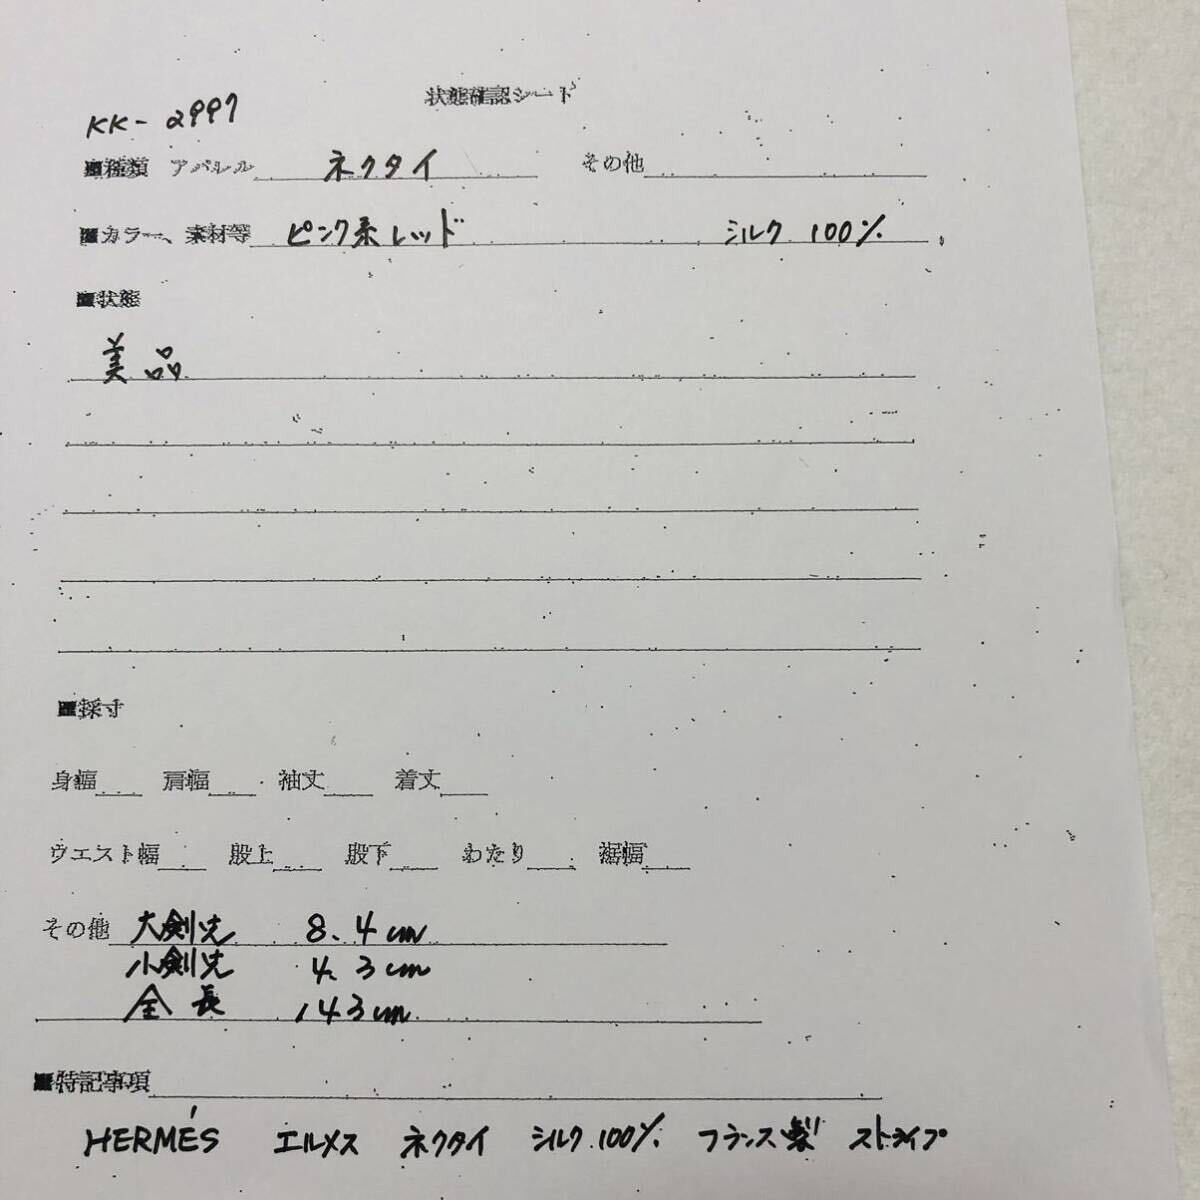 状態確認シート
KK-2997
■種類 アパレル ネクタイ その他
■カラー、素材等 ピンク系レッド シルク 100%
■状態
美品
■採寸
身幅 肩幅 袖丈 着丈
ウエスト幅 股上 股下 わたり 裾幅
その他 大剣先 8.4cm
小剣先 4.3cm
全長 143cm
■特記事項
HERMÉS エルメス ネクタイ シルク 100% フランス製 ストライプ